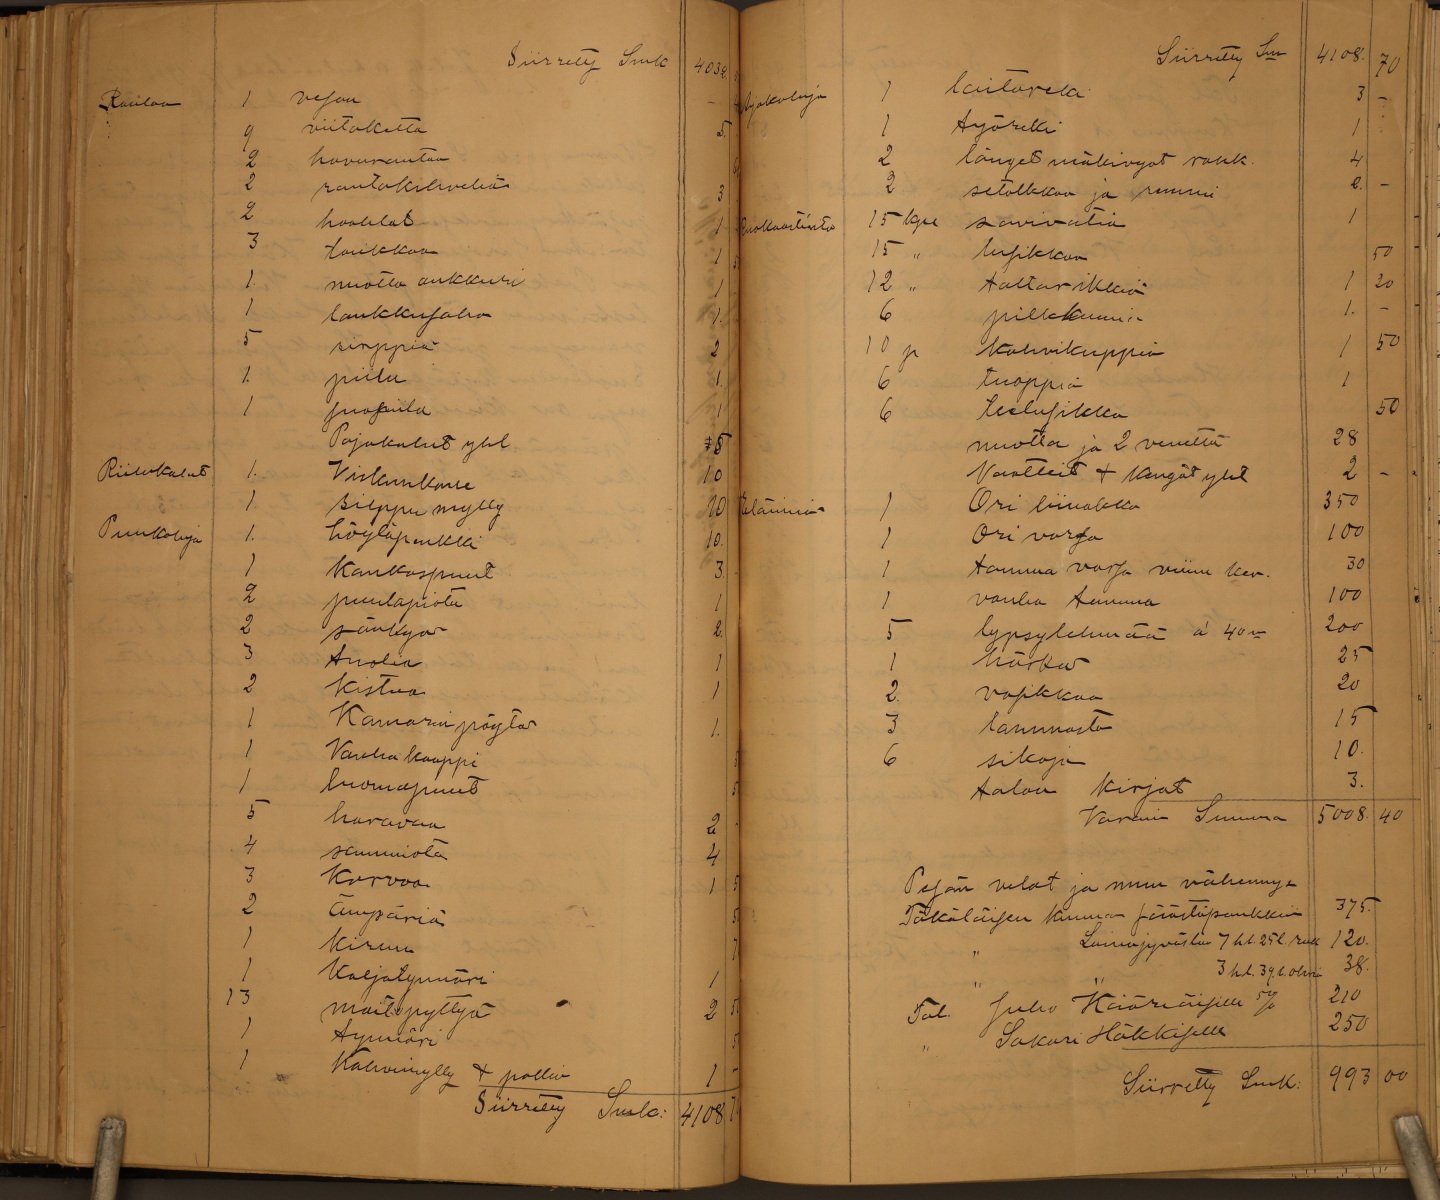 Siirretty Smk 4038.
Rautaa 1 vesuri –
9 viitaketta 5.
2 havurautaa
2 rautakihveliä 3
2 haahlat 1
3 kaukkaa 1
1. nuotta ankkuri 1
1 1.
5 sirppiä 2
1. piilu 1.
1 1
Pajakalut yht 5
Riihikalut 1. Viskurikone 10
1. silppu mylly 10
Puukaluja 1. höyläpenkki 10.
1 Kankaspuut 3
2 puulapiota 1
2 sänkyä 2.
3 tuolia 1
2 Kistua 1
1 Kamarin pöytä 1.
1 Vanha kaappi
1 luomapuut
5 haravaa 2
4 sammiota 4
3 Korvoa 1
2 Ämpäriä
1 Kirnu
1 Kaljatynnöri 1
13 maitopyttyä 2
1 tynnöri
1 Kahvimylly + pollio 1 –
Siirretty Smk: 4108
Siirretty Sm 4108. 70
Ajokaluja 1 laitareki 3 –
1 työreki 1
2 länget mäkivyöt rahk. 4
2 satolkkaa ja rinnus 2. –
Ruokaastioita 15 kpl savivatia 1
15 " lusikkaa 50
12 " tallarikkia 1 20
6 pilkkumia 1. –
10 p Kahvikuppia 1 50
6 tuoppia 1
6 teelusikka 50
nuotta ja 2 venettä 28
Vaatteet + Kengät yht 2 –
Eläimiä 1 Ori liinakko 350
1 Ori varsa 100
1 tamma varsa viime kev. 30
1 vanha tamma 100
5 lypsylehmää á 40 m 200
1 härkä 25
2. vasikkaa 20
3 lammasta 15
6 sikoja 10.
talon kirjat 3.
Varain Summa 5008. 40
Pesän velat ja muu vähennys
Täkäläisen kunnan säästöpankkiin 375.
" Lainajyvästön 7 hl. 25 l. ruk 120.
" " 3 hl. 39 l. ohria 38.
Tal. Juho Kääriäiselle 210
" Sakari Häkkiselle 250
Siirretty Smk: 993 00